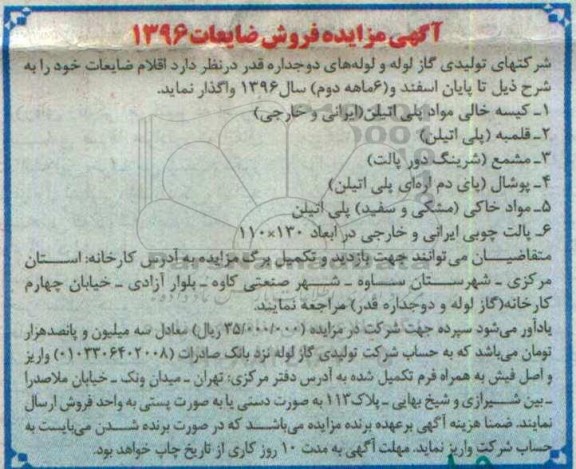 آگهی مزایده فروش ضایعات ۱۳۹۶
شرکتهای تولیدی گاز لوله و لوله‌های دوجداره قدر درنظر دارد اقلام ضایعات خود را به
شرح ذیل تا پایان اسفند و(۶ماهه دوم) سال۱۳۹۶ واگذار نماید.
۱ـ کیسه خالی مواد پلی اتیلن(ایرانی و خارجی)
۲ـ قلمبه (پلی اتیلن)
۳ـ مشمع (شرینگ دور پالت)
۴ـ پوشال (پای دم اره‌ای پلی اتیلن)
۵ـ مواد خاکی (مشکی و سفید) پلی اتیلن
۶ـ پالت چوبی ایرانی و خارجی در ابعاد ۱۳۰×۱۱۰
متقاضیـان می‌توانند جهت بازدید و تکمیل برگ مزایده به آدرس کارخانه: اسـتان
مرکزی ـ شهرسـتان سـاوه ـ شـهر صنعتی کاوه ـ بلوار آزادی ـ خیابان چهارم
کارخانه(گاز لوله و دوجداره قدر) مراجعه نمایند.
یادآور می‌شود سپرده جهت شرکت در مزایده (۳۵/۰۰۰/۰۰۰ ریال) معادل سه میلیون و پانصدهزار
تومان می‌باشد که به حساب شرکت تولیدی گاز لوله نزد بانک صادرات (۰۱۰۳۳۰۶۴۰۲۰۰۸) واریز
و اصل فیش به همراه فرم تکمیل شده به آدرس دفتر مرکزی: تهران ـ میدان ونک ـ خیابان ملاصدرا
ـ بین شـیرازی و شیخ بهایی ـ پلاک۱۱۳ به صورت دستی یا به صورت پستی به واحد فروش ارسال
نمایند. ضمنا هزینه آگهی برعهده برنده مزایده می‌باشـد که در صورت برنده شـدن می‌بایست به
حساب شرکت واریز نماید. مهلت آگهی به مدت ۱۰ روز کاری از تاریخ چاپ خواهد بود.